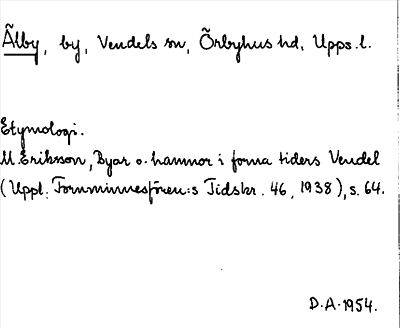 Älby, by, Vendels sn, Örbyhus hd, Upps. l.
Etymologi.
M. Eriksson, Byar o. hamnor i forna tiders Vendel
(Uppl. Fornminnesfören:s Tidskr. 46, 1938), s. 64.
D.A. 1954.